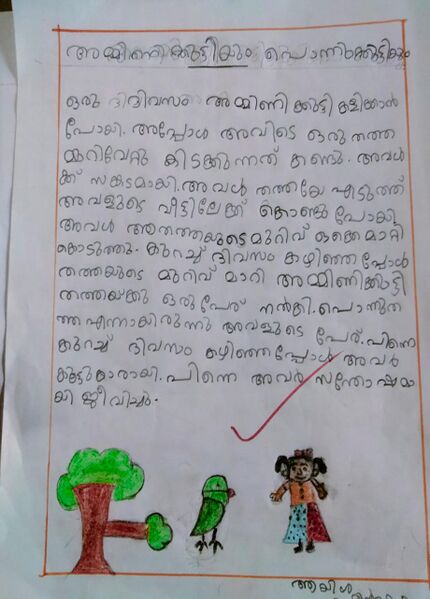 അമ്മിണിക്കുട്ടിയും പൊന്നിംക്കുട്ടികും
ഒരു ദിവസം അമ്മിണി ക്കുട്ടി കളിക്കാൻ
പോയി. അപ്പോൾ അവിടെ ഒരു തത്ത
മുറിവേറ്റു കിടക്കുന്നത് കണ്ടു. അവൾ
ക്ക് സങ്കടമായി. അവൾ തത്തയേ എടുത്ത്
അവളുടെ വീട്ടിലേക്ക് കൊണ്ടു പോയി
അവൾ ആ തത്തയുടെ മുറിവ് ഒക്കെ മാറ്റി
കൊടുത്തു. കുറച്ച് ദിവസം കഴിഞ്ഞപ്പോൾ
തത്തയുടെ മുറിവ് മാറി അമ്മിണിക്കുട്ടി
തത്തയ്ക്കു ഒരു പേര് നൽകി. പൊന്നുത
ത്ത എന്നായിരുന്നു അവളുടെ പേര്. പിന്നെ
കുറച്ച് ദിവസം കഴിഞ്ഞപ്പോൾ അവർ
കൂട്ടുകാരായി. പിന്നെ അവർ സന്തോഷമാ
യി ജീവിച്ചു.
ആയിശ